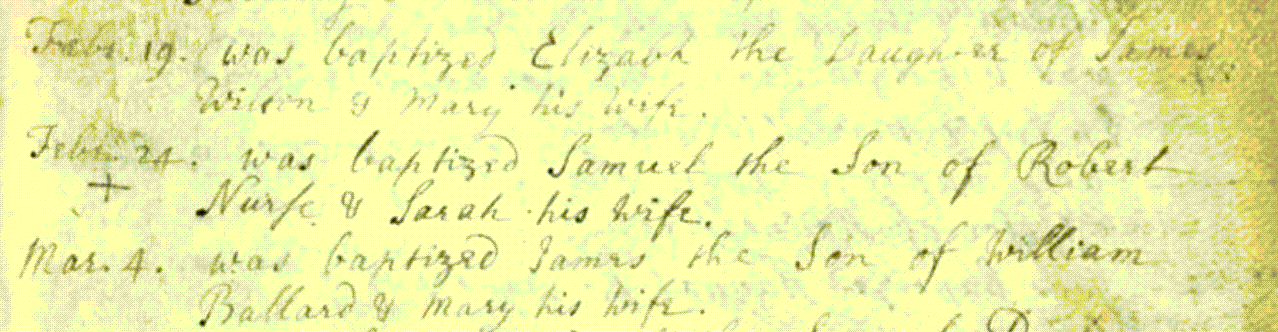 Febr. 19. was baptized Elizabh the Daughter of James
Wilson & Mary his wife.
Febr. 24. was baptized Samuel the Son of Robert
+ Nurse & Sarah his wife.
Mar. 4. was baptized James the Son of William
Ballard & Mary his wife.